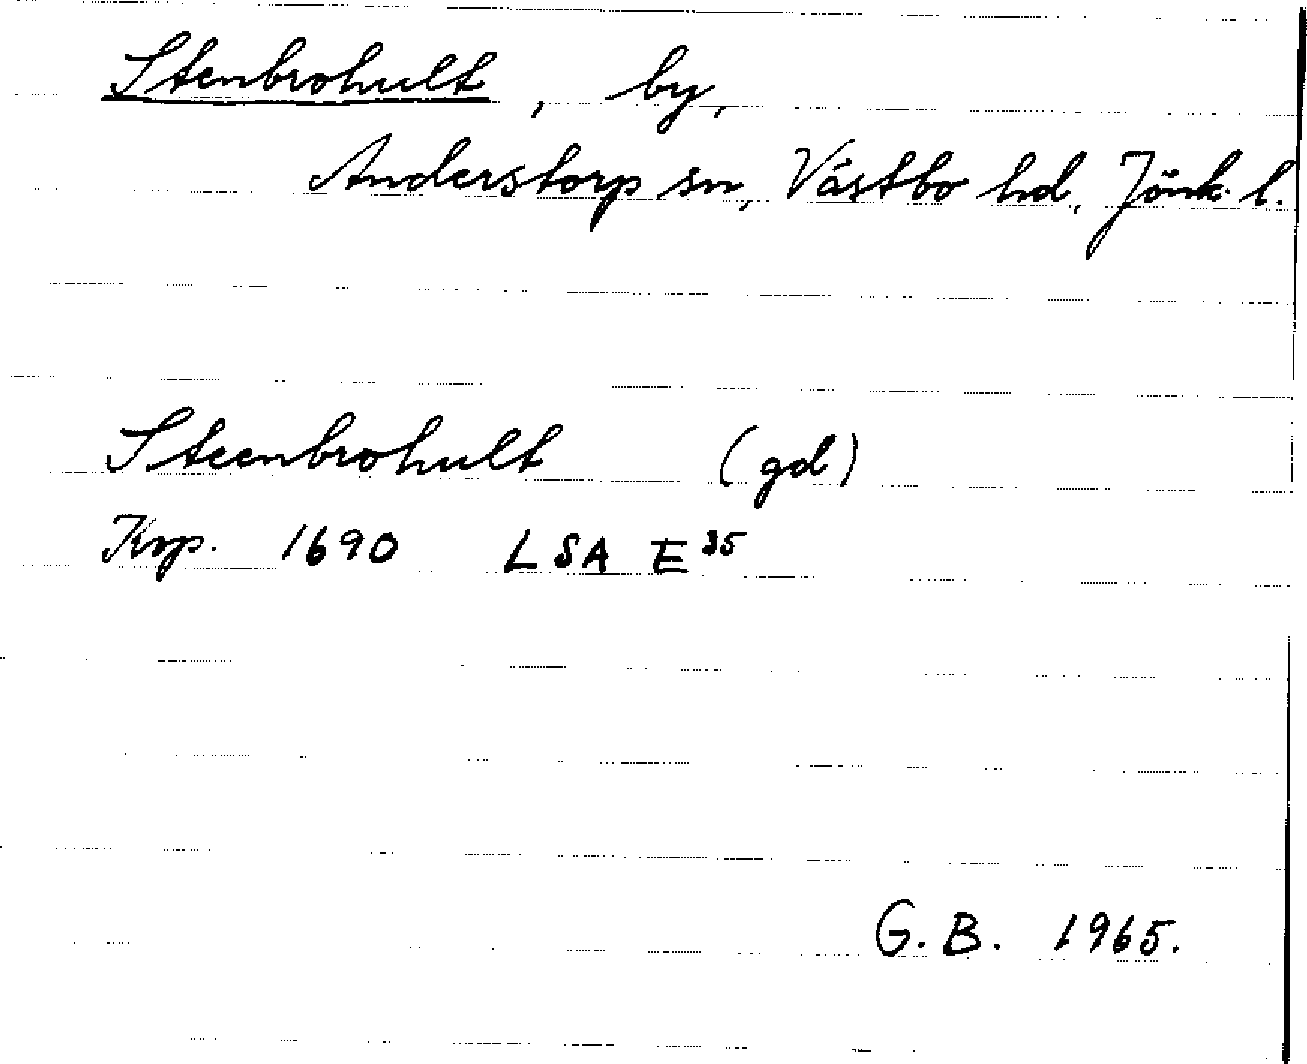 Stenbrohult, by,
Anderstorp sn, Västbo hd, Jönk. l.
Steenbrohult (gd)
Krp. 1690 LSA E³⁵
G. B. 1965.